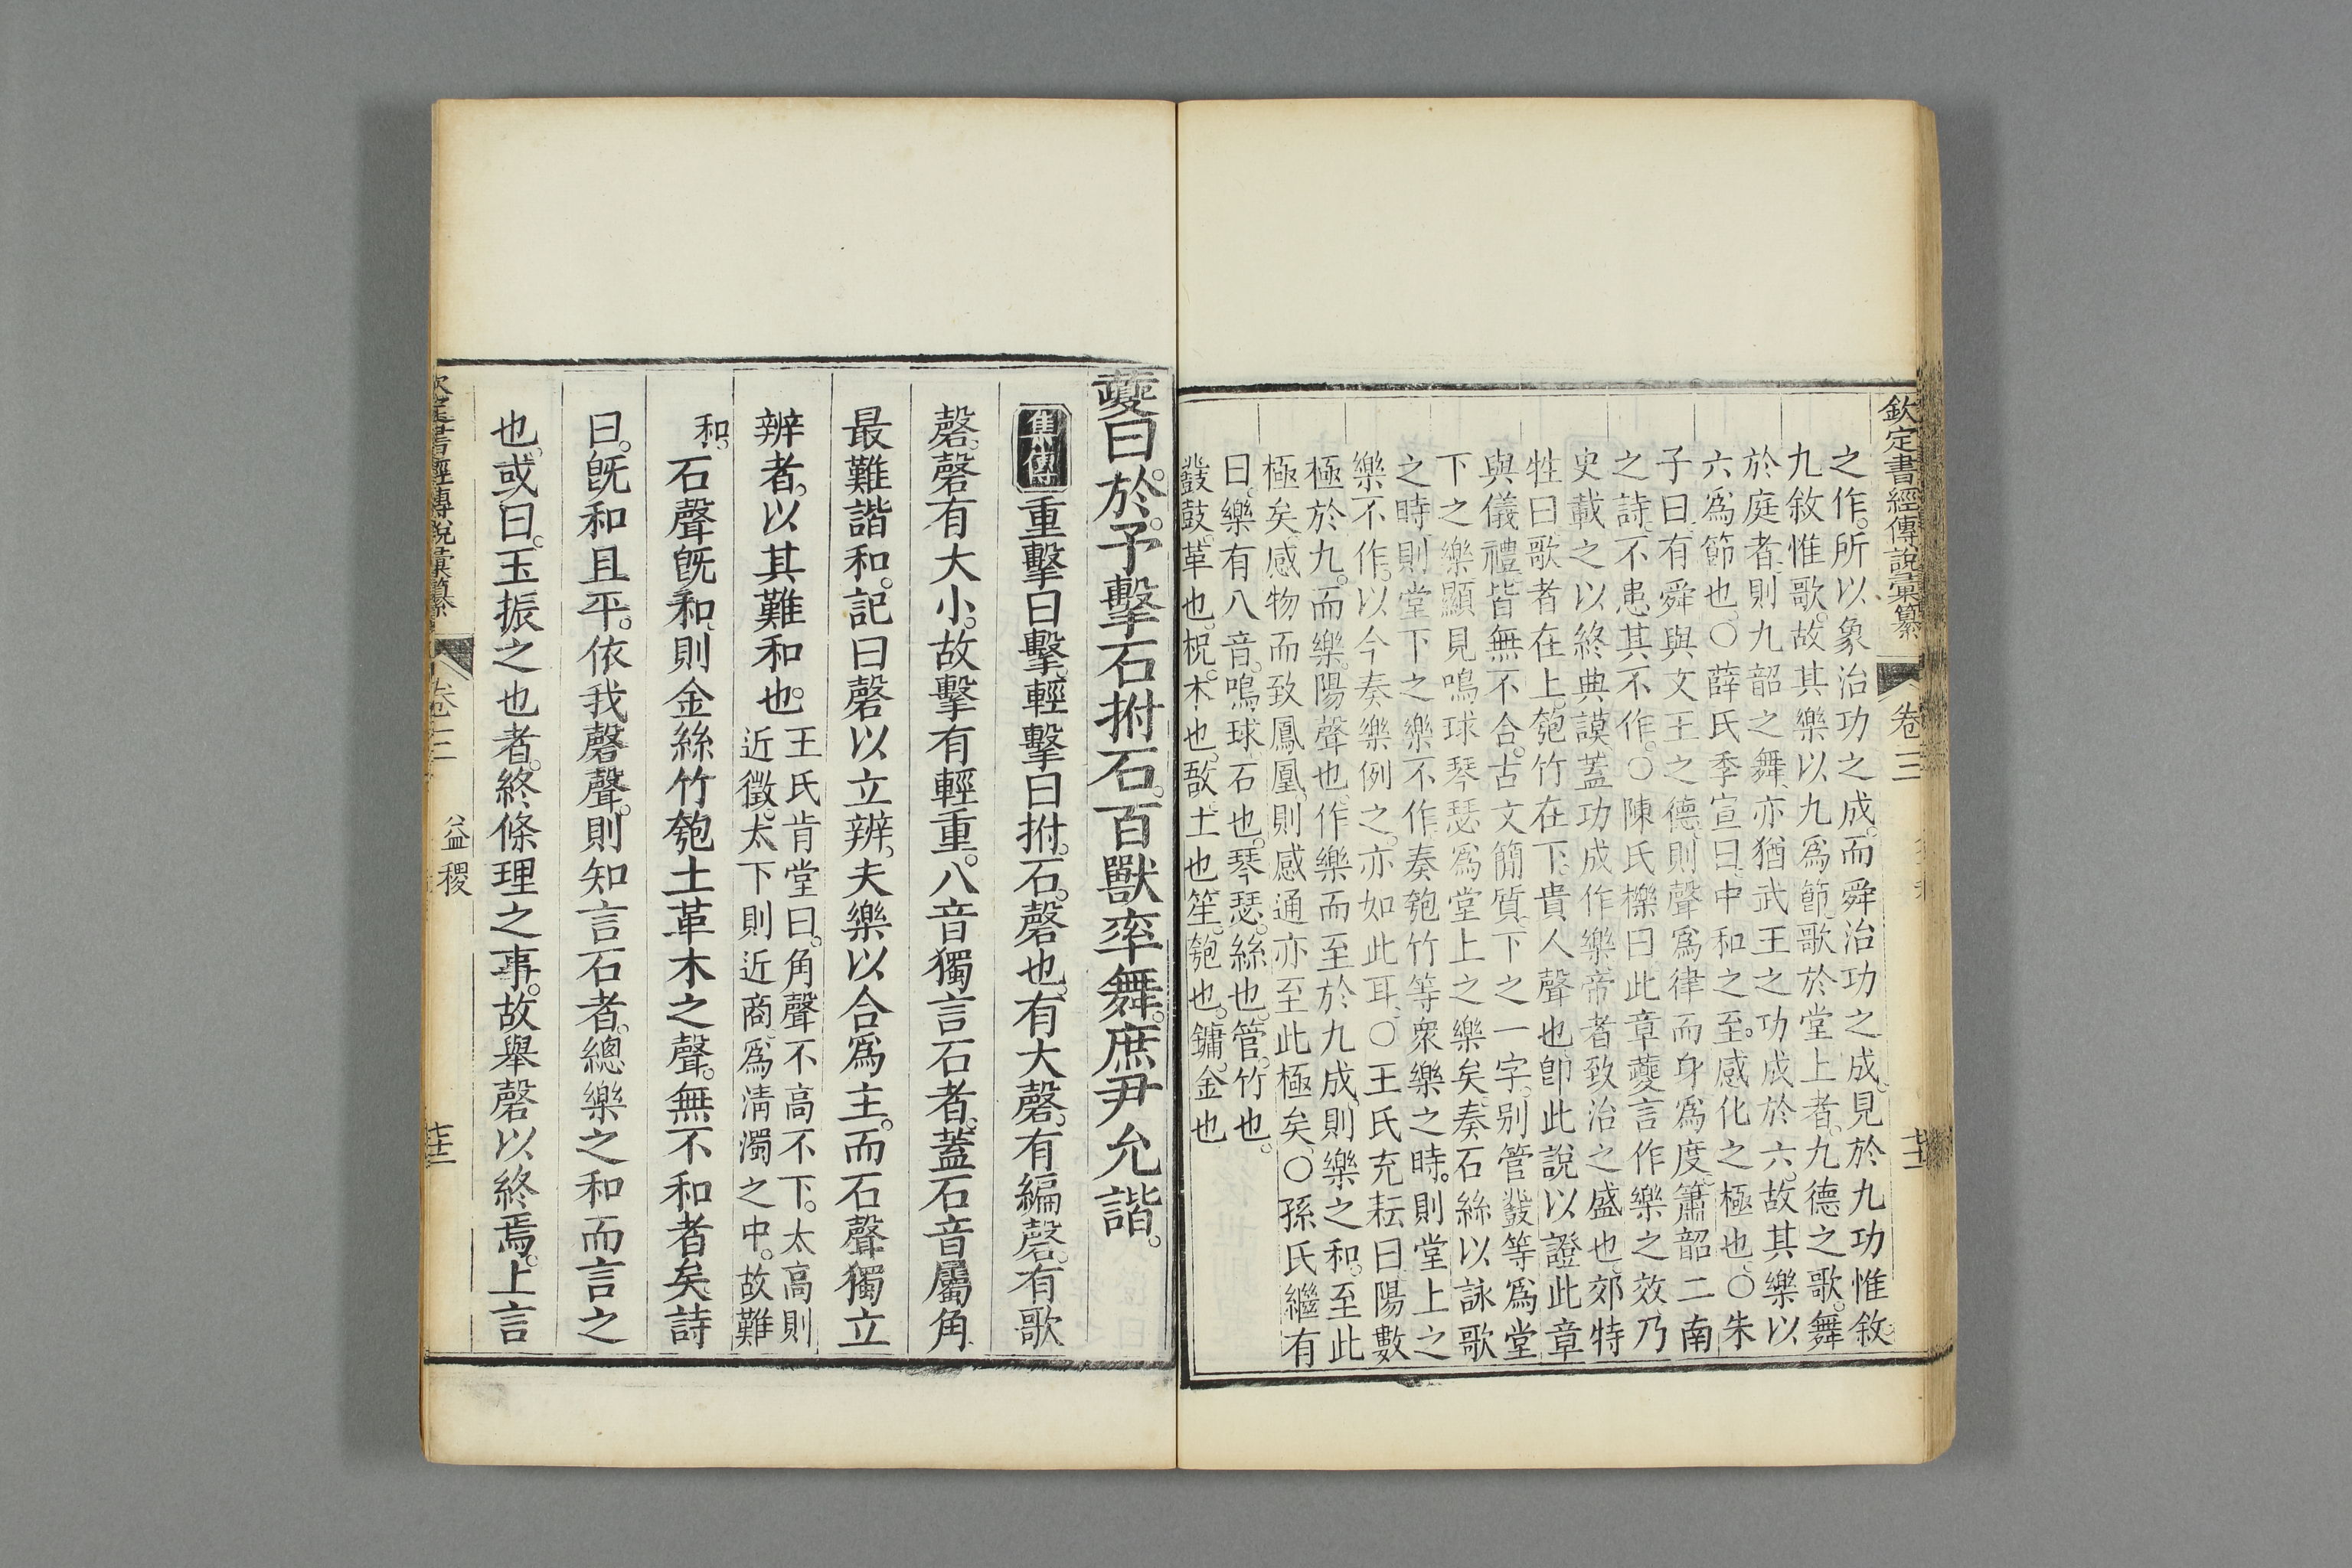 欽定書經傳說彙纂 卷三
之作。所以象治功之成。而舜治功之成。見於九功惟敘
九敘惟歌。故其樂以九爲節。歌於堂上者。九德之歌。舞
於庭者。則九韶之舞。亦猶武王之功成於六。故其樂以
六爲節也。○薛氏季宣曰。中和之至。感化之極也。○朱
子曰。有舜與文王之德。則聲爲律而身爲度。簫韶二南
之詩。不患其不作。○陳氏櫟曰。此章夔言作樂之效。乃
史載之以終典謨。蓋功成作樂。帝者致治之盛也。郊特
牲曰。歌者在上。匏竹在下。貴人聲也。卽此說以證此章
與儀禮。皆無不合。古文簡質。下之一字。別管鼗等爲堂
下之樂。顯見鳴球琴瑟爲堂上之樂矣。奏石絲以詠歌
之時。則堂下之樂不作。奏匏竹等衆樂之時。則堂上之
樂不作。以今奏樂例之。亦如此耳。○王氏充耘曰。陽數
極於九。而樂。陽聲也。作樂而至於九成。則樂之和。至此
極矣。感物而致鳳凰。則感通亦至此極矣。○孫氏繼有
曰。樂有八音。鳴球。石也。琴瑟。絲也。管。竹也。
鼗鼓。革也。柷。木也。敔。土也。笙。匏也。鏞。金也
夔曰。於。予擊石拊石。百獸率舞。庶尹允諧。
集傳 重擊曰擊。輕擊曰拊。石。磬也。有大磬。有編磬。有歌
磬。磬有大小。故擊有輕重。八音獨言石者。蓋石音屬角
最難諧和。記曰磬以立辨。夫樂以合爲主。而石聲獨立
辨者。以其難和也。
王氏肯堂曰。角聲不高不下。太高則
近徵。太下則近商。爲淸濁之中。故難
和。
石聲旣和。則金絲竹匏土革木之聲。無不和者矣。詩
曰。旣和且平。依我磬聲。則知言石者。總樂之和而言之
也。或曰。玉振之也者。終條理之事。故舉磬以終焉。上言
欽定書經傳說彙纂 卷三 益稷